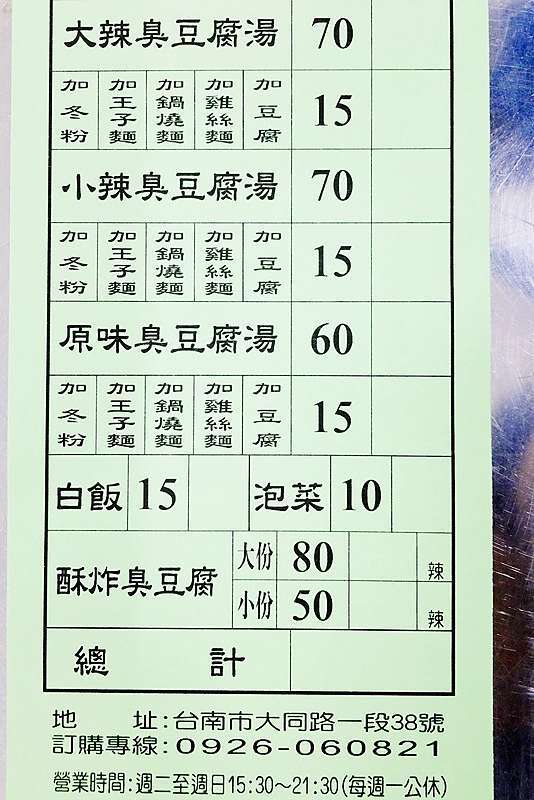 大辣臭豆腐湯 70
加冬粉 加王子麵 加鍋燒麵 加雞絲麵 加豆腐 15
小辣臭豆腐湯 70
加冬粉 加王子麵 加鍋燒麵 加雞絲麵 加豆腐 15
原味臭豆腐湯 60
加冬粉 加王子麵 加鍋燒麵 加雞絲麵 加豆腐 15
白飯 15 泡菜 10
酥炸臭豆腐 大份 80 辣
小份 50 辣
總計
地址:台南市大同路一段38號
訂購專線:0926-060821
營業時間:週二至週日15:30～21:30(每週一公休)